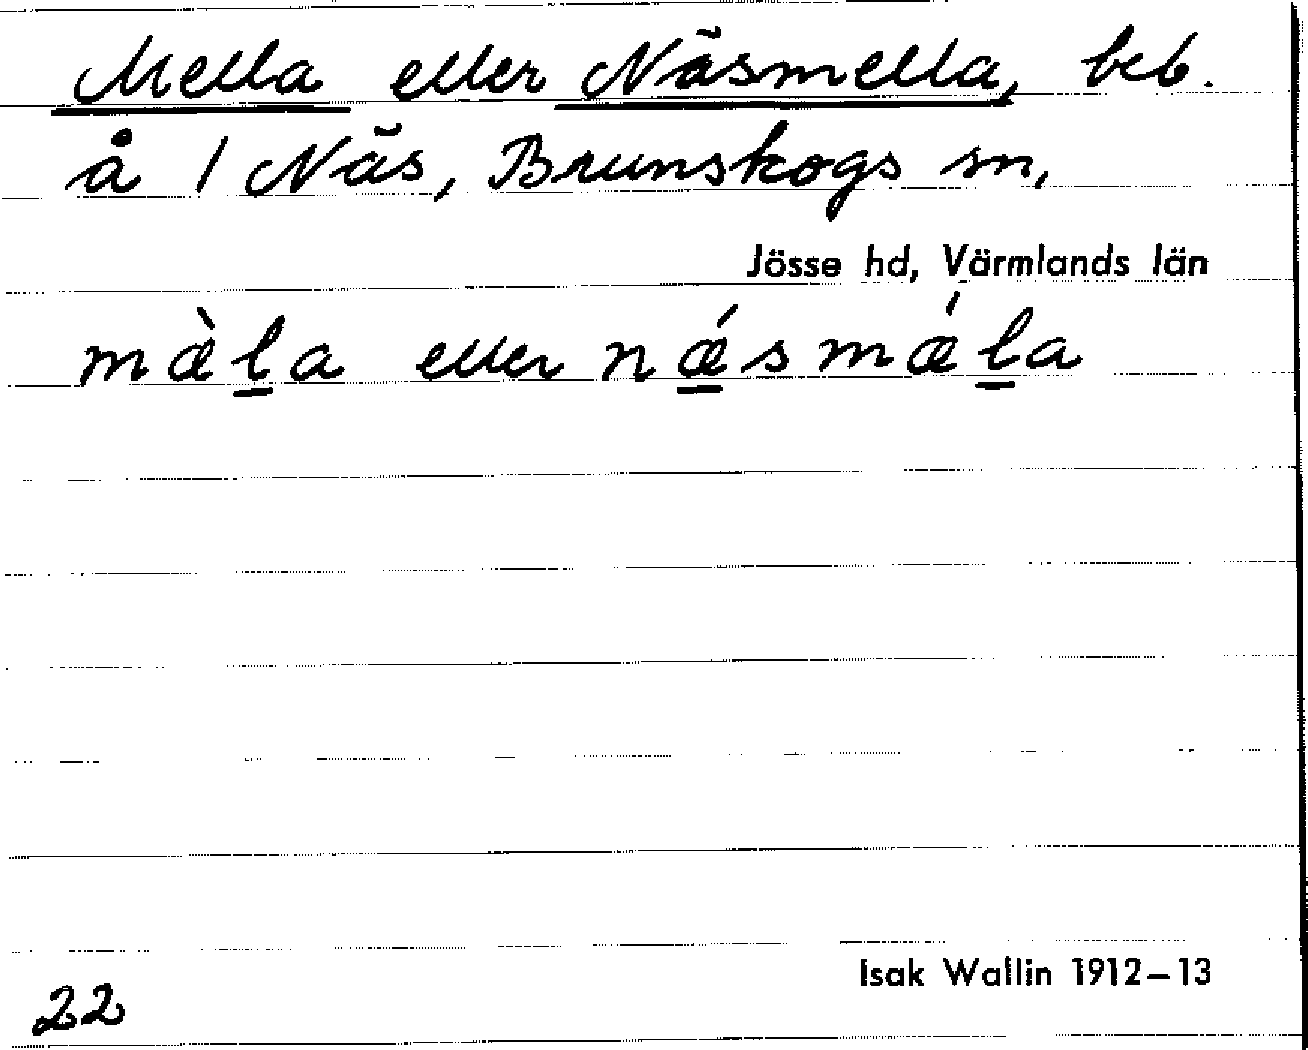 Mella eller Näsmella, beb.
å 1 Näs, Brunskogs sn,
Jösse hd, Värmlands län
mæ̀l̲a eller nǽ̲smæ´l̲a
Isak Wallin 1912–13
22